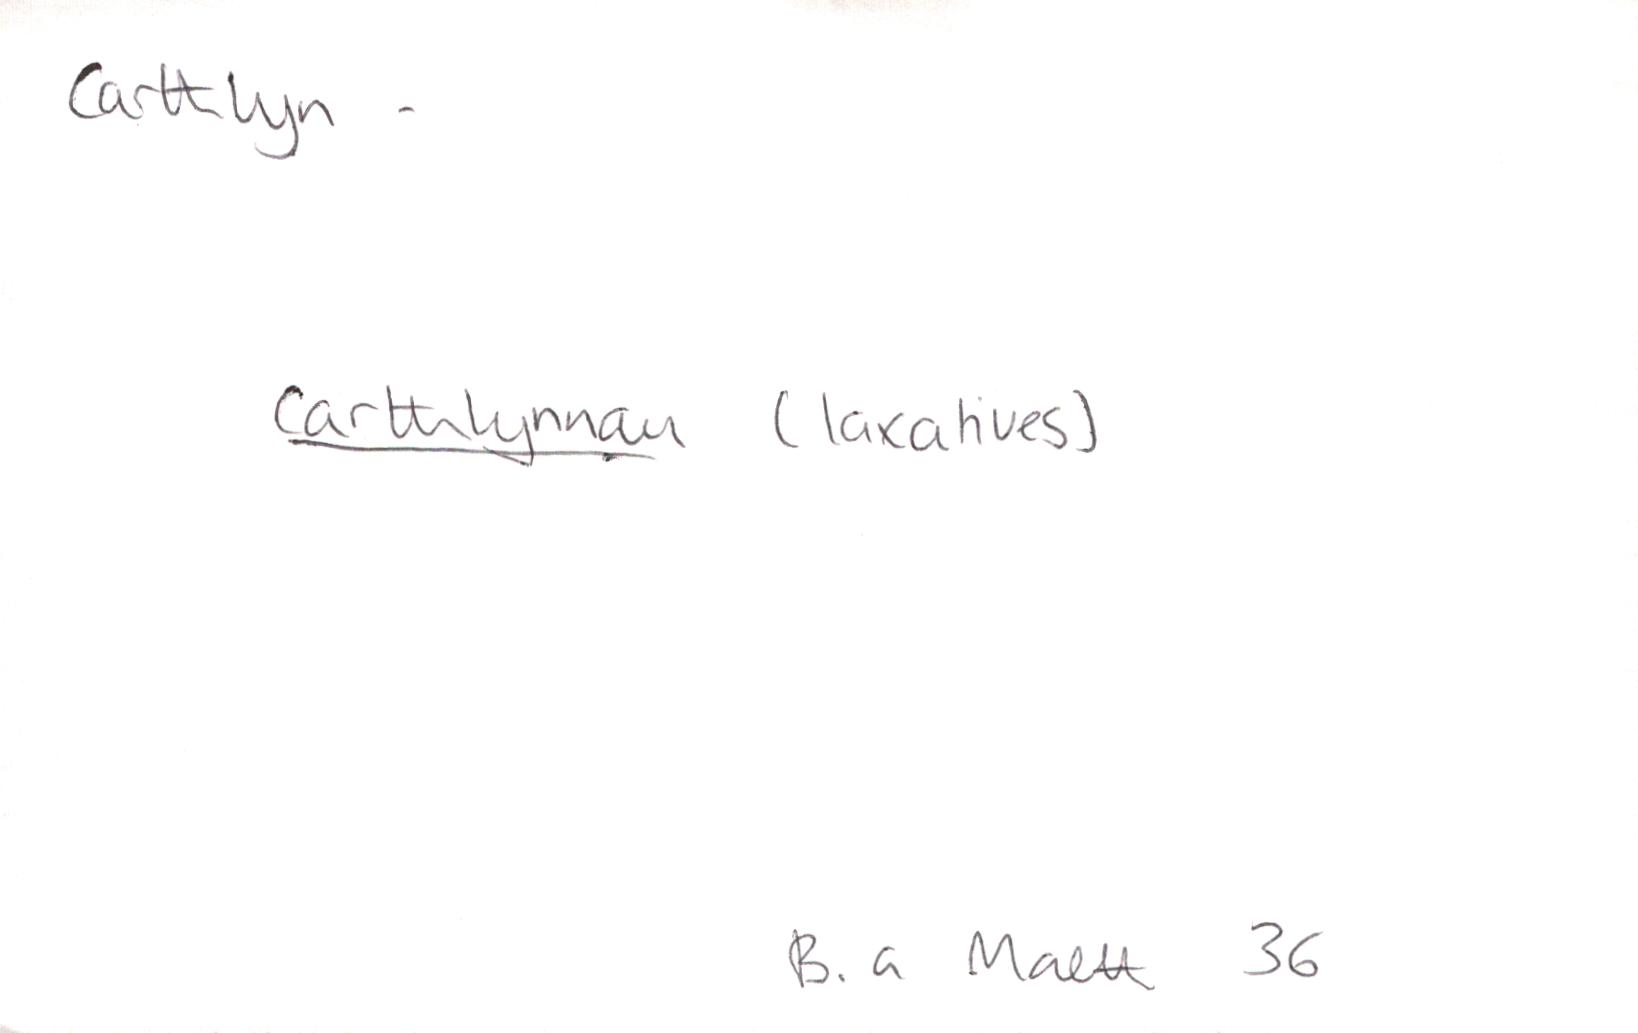 Carthlyn -
Carthlynnau (laxatives)
B. a Maeth 36